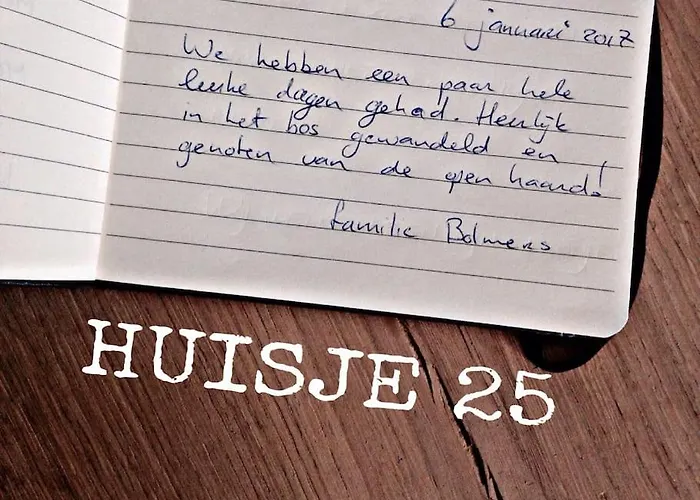 6 januari 2017
We hebben een paar hele
leuke dagen gehad. Heerlijk
in het bos gewandeld en
genoten van de open haard!
familie Bolmers
HUISJE 25